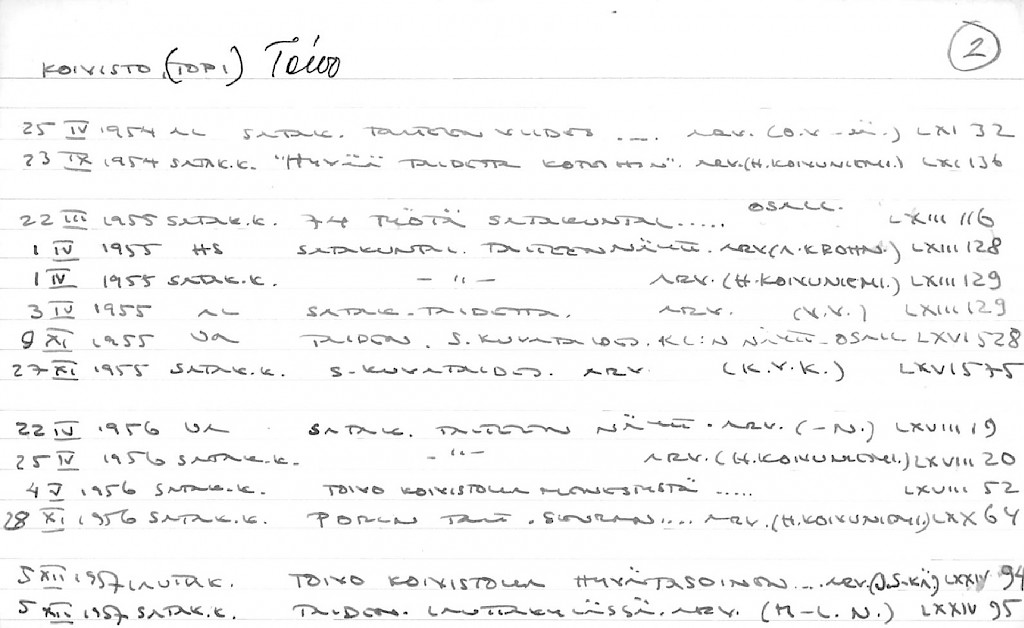 KOIVISTO, (TOPI) Toivo 2
25 IV 1954 AL SATAK. TAITEEN VUODES .... ARV. (O.V-ii.) LXI 32
23 IX 1954 SATAK.K. "HYVÄÄ TAIDETTA KOTEIHIN". ARV.(H.KOIVUNIEMI.) LXI 136
22 III 1955 SATAK.K. 74 TYÖTÄ SATAKUNTAL..... OSALL. LXIII 116
1 IV 1955 HS SATAKUNTAL. TAITEEN NÄYTT. ARV.(A.KROHN.) LXIII 128
1 IV 1955 SATAK.K. – " – ARV. (H.KOIVUNIEMI.) LXIII 129
3 IV 1955 AL SATAK. TAIDETTA. ARV. (V.V.) LXIII 129
9 XI 1955 UA TAIDEN. S.KUVATAIDES. KL:N NÄYTT. OSALL LXVI 528
27 XI 1955 SATAK.K. S-KUVATAIDES. ARV. (K.V.K.) LXVI 575
22 IV 1956 UA SATAK. TAITEEN NÄYTT. ARV. (-N.) LXVIII 19
25 IV 1956 SATAK.K. – " – ARV. (H.KOIVUNIEMI.) LXVIII 20
4 V 1956 SATAK.K. TOIVO KOIVISTOLLA MENESTYSTÄ ..... LXVIII 52
28 XI 1956 SATAK.K. PORIN TAIT. SEURAN .... ARV. (H.KOIVUNIEMI) LXX 64
5 XII 1957 LAUTAK. TOIVO KOIVISTOLLA HYVÄTASOINEN ... ARV.(J.S-KÄ) LXXIV 94
5 XII 1957 SATAK.K. TAIDEN. LAUTTAKYLÄSSÄ. ARV. (M-L.N.) LXXIV 95